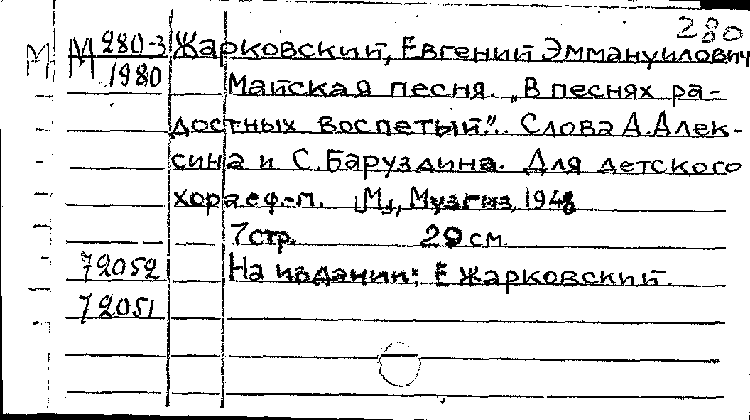 280
М М 280-3 Жарковский, Евгений Эммануилович
1980 Майская песня. „В песнях ра-
достных воспетый". Слова А. Алек-
сина и С. Баруздина. Для детского
хора с ф.-п. М., Музгиз, 1948
7 стр. 29 см.
72052 На издании: Е Жарковский.
72051